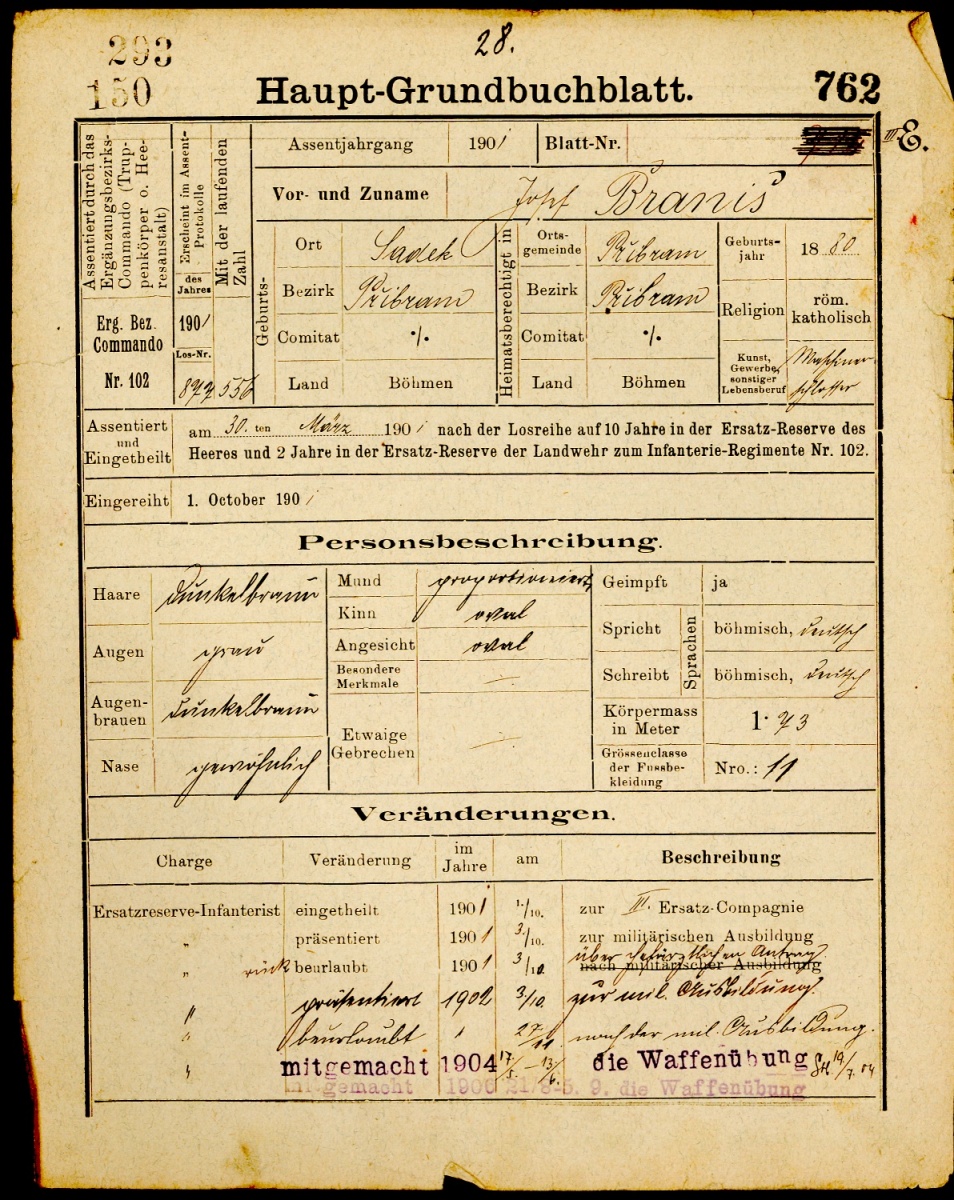 28.
293
150
Haupt-Grundbuchblatt.
762
III E.
Assentiert durch das Ergänzungsbezirks-Commando (Truppenkörper o. Heeresanstalt)
Erg. Bez. Commando
Nr. 102
Erscheint im Assent-Protokolle
des Jahres
1901
Los-Nr.
877
Mit der laufenden Zahl
556
Assentjahrgang 1901 Blatt-Nr.
Vor- und Zuname Josef Braniš
Geburts-
Ort Sadek
Bezirk Přibram
Comitat ·/.
Land Böhmen
Heimatsberechtigt in
Orts-gemeinde Přibram
Bezirk Přibram
Comitat ·/.
Land Böhmen
Geburts-jahr 1880
Religion röm. katholisch
Kunst, Gewerbe, sonstiger Lebensberuf Maschinenschlosser
Assentiert und Eingetheilt
am 30. ten März 1901 nach der Losreihe auf 10 Jahre in der Ersatz-Reserve des
Heeres und 2 Jahre in der Ersatz-Reserve der Landwehr zum Infanterie-Regimente Nr. 102.
Eingereiht 1. October 1901
Personsbeschreibung.
Haare dunkelbraun
Augen grau
Augen-brauen dunkelbraun
Nase gewöhnlich
Mund proportioniert
Kinn oval
Angesicht oval
Besondere Merkmale ÷
Etwaige Gebrechen ÷
Geimpft ja
Sprachen
Spricht böhmisch, deutsch
Schreibt böhmisch, deutsch
Körpermass in Meter 1·73
Grössenclasse der Fussbe-kleidung Nro.: 11
Veränderungen.
Charge Veränderung im Jahre am Beschreibung
Ersatzreserve-Infanterist eingetheilt 1901 1./10. zur III. Ersatz-Compagnie
„ präsentiert 1901 3./10. zur militärischen Ausbildung
über chefärztlichen Antrag.
„ rück beurlaubt 1901 3/10. nach militärischer Ausbildung
„ präsentiert 1902 3/10. zur mil. Ausbildung.
„ beurlaubt " 27/11 nach der mil. Ausbildung.
„ mitgemacht 1904 17/5. – 13/6. die Waffenübung 19/7. 04
mitgemacht 1906 21/8-5. 9. die Waffenübung